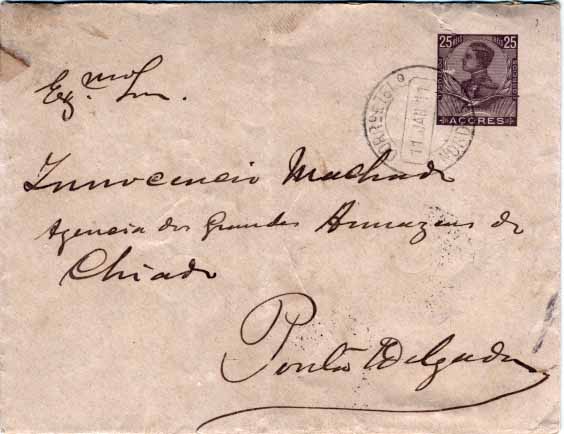 25 RÉIS 25
CORREIO
AÇORES
11 JAN 11
Ex.mo Snr.
Innocencio Machado
Agencia dos Grandes Armazens do
Chiado
Ponta Delgada